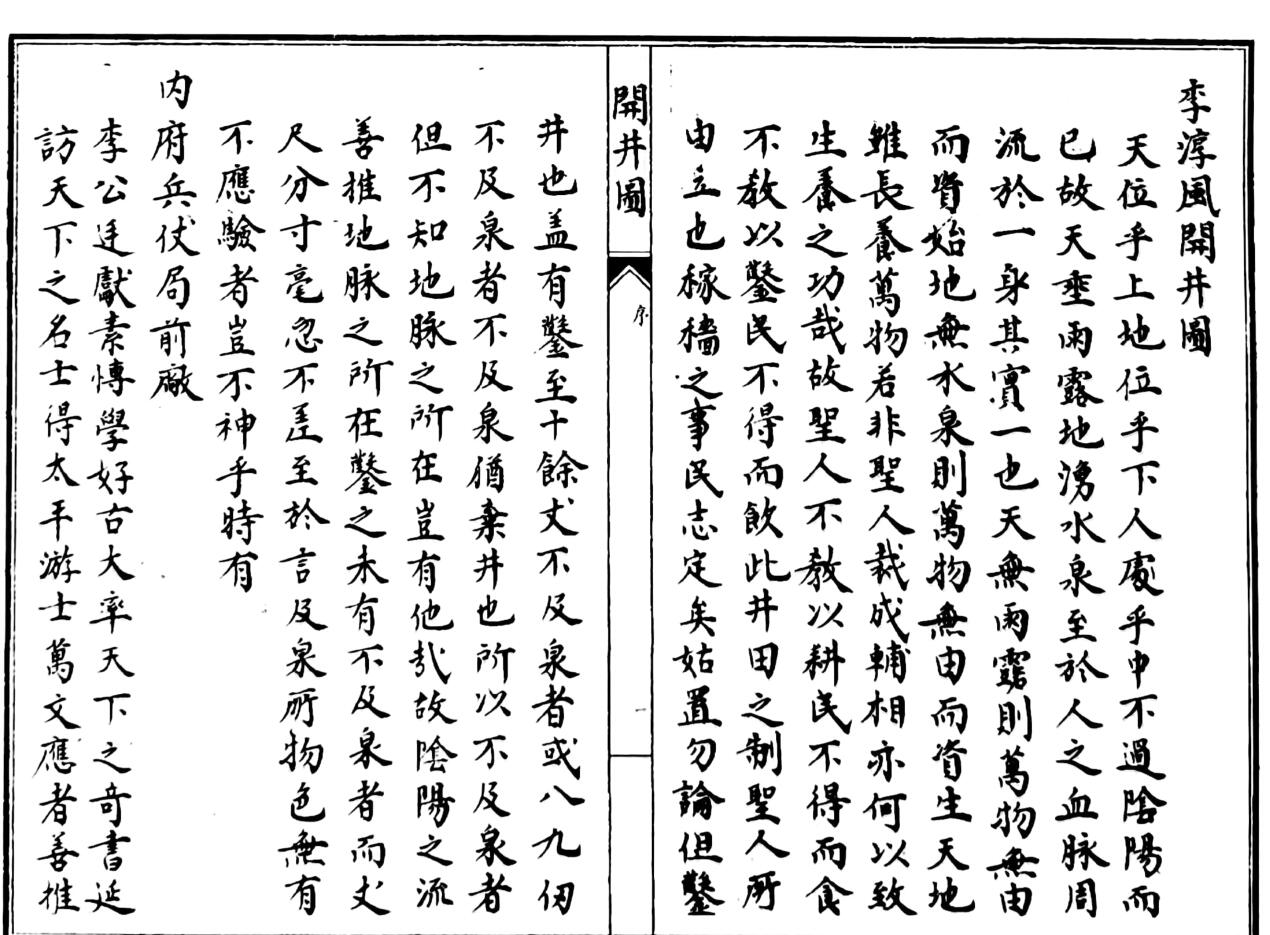 李淳風開井圖
天位乎上地位乎下人處乎中不過陰陽而
已故天垂雨露地湧水泉至於人之血脉周
流於一身其實一也天無雨露則萬物無由
而資始地無水泉則萬物無由而資生天地
雖長養萬物若非聖人裁成輔相亦何以致
生養之功哉故聖人不教以耕民不得而食
不教以鑿民不得而飲此井田之制聖人所
由立也稼穡之事民志定矣姑置勿論但鑿
開井圖
序
一
井也盖有鑿至十餘丈不及泉者或八九仞
不及泉者不及泉猶棄井也所以不及泉者
但不知地脉之所在豈有他哉故陰陽之流
善推地脉之所在鑿之未有不及泉者而丈
尺分寸毫忽不差至於言及泉所物色無有
不應驗者豈不神乎時有
内府兵仗局前廠
李公廷獻素慱學好古大率天下之奇書延
訪天下之名士得太平游士萬文應者善推